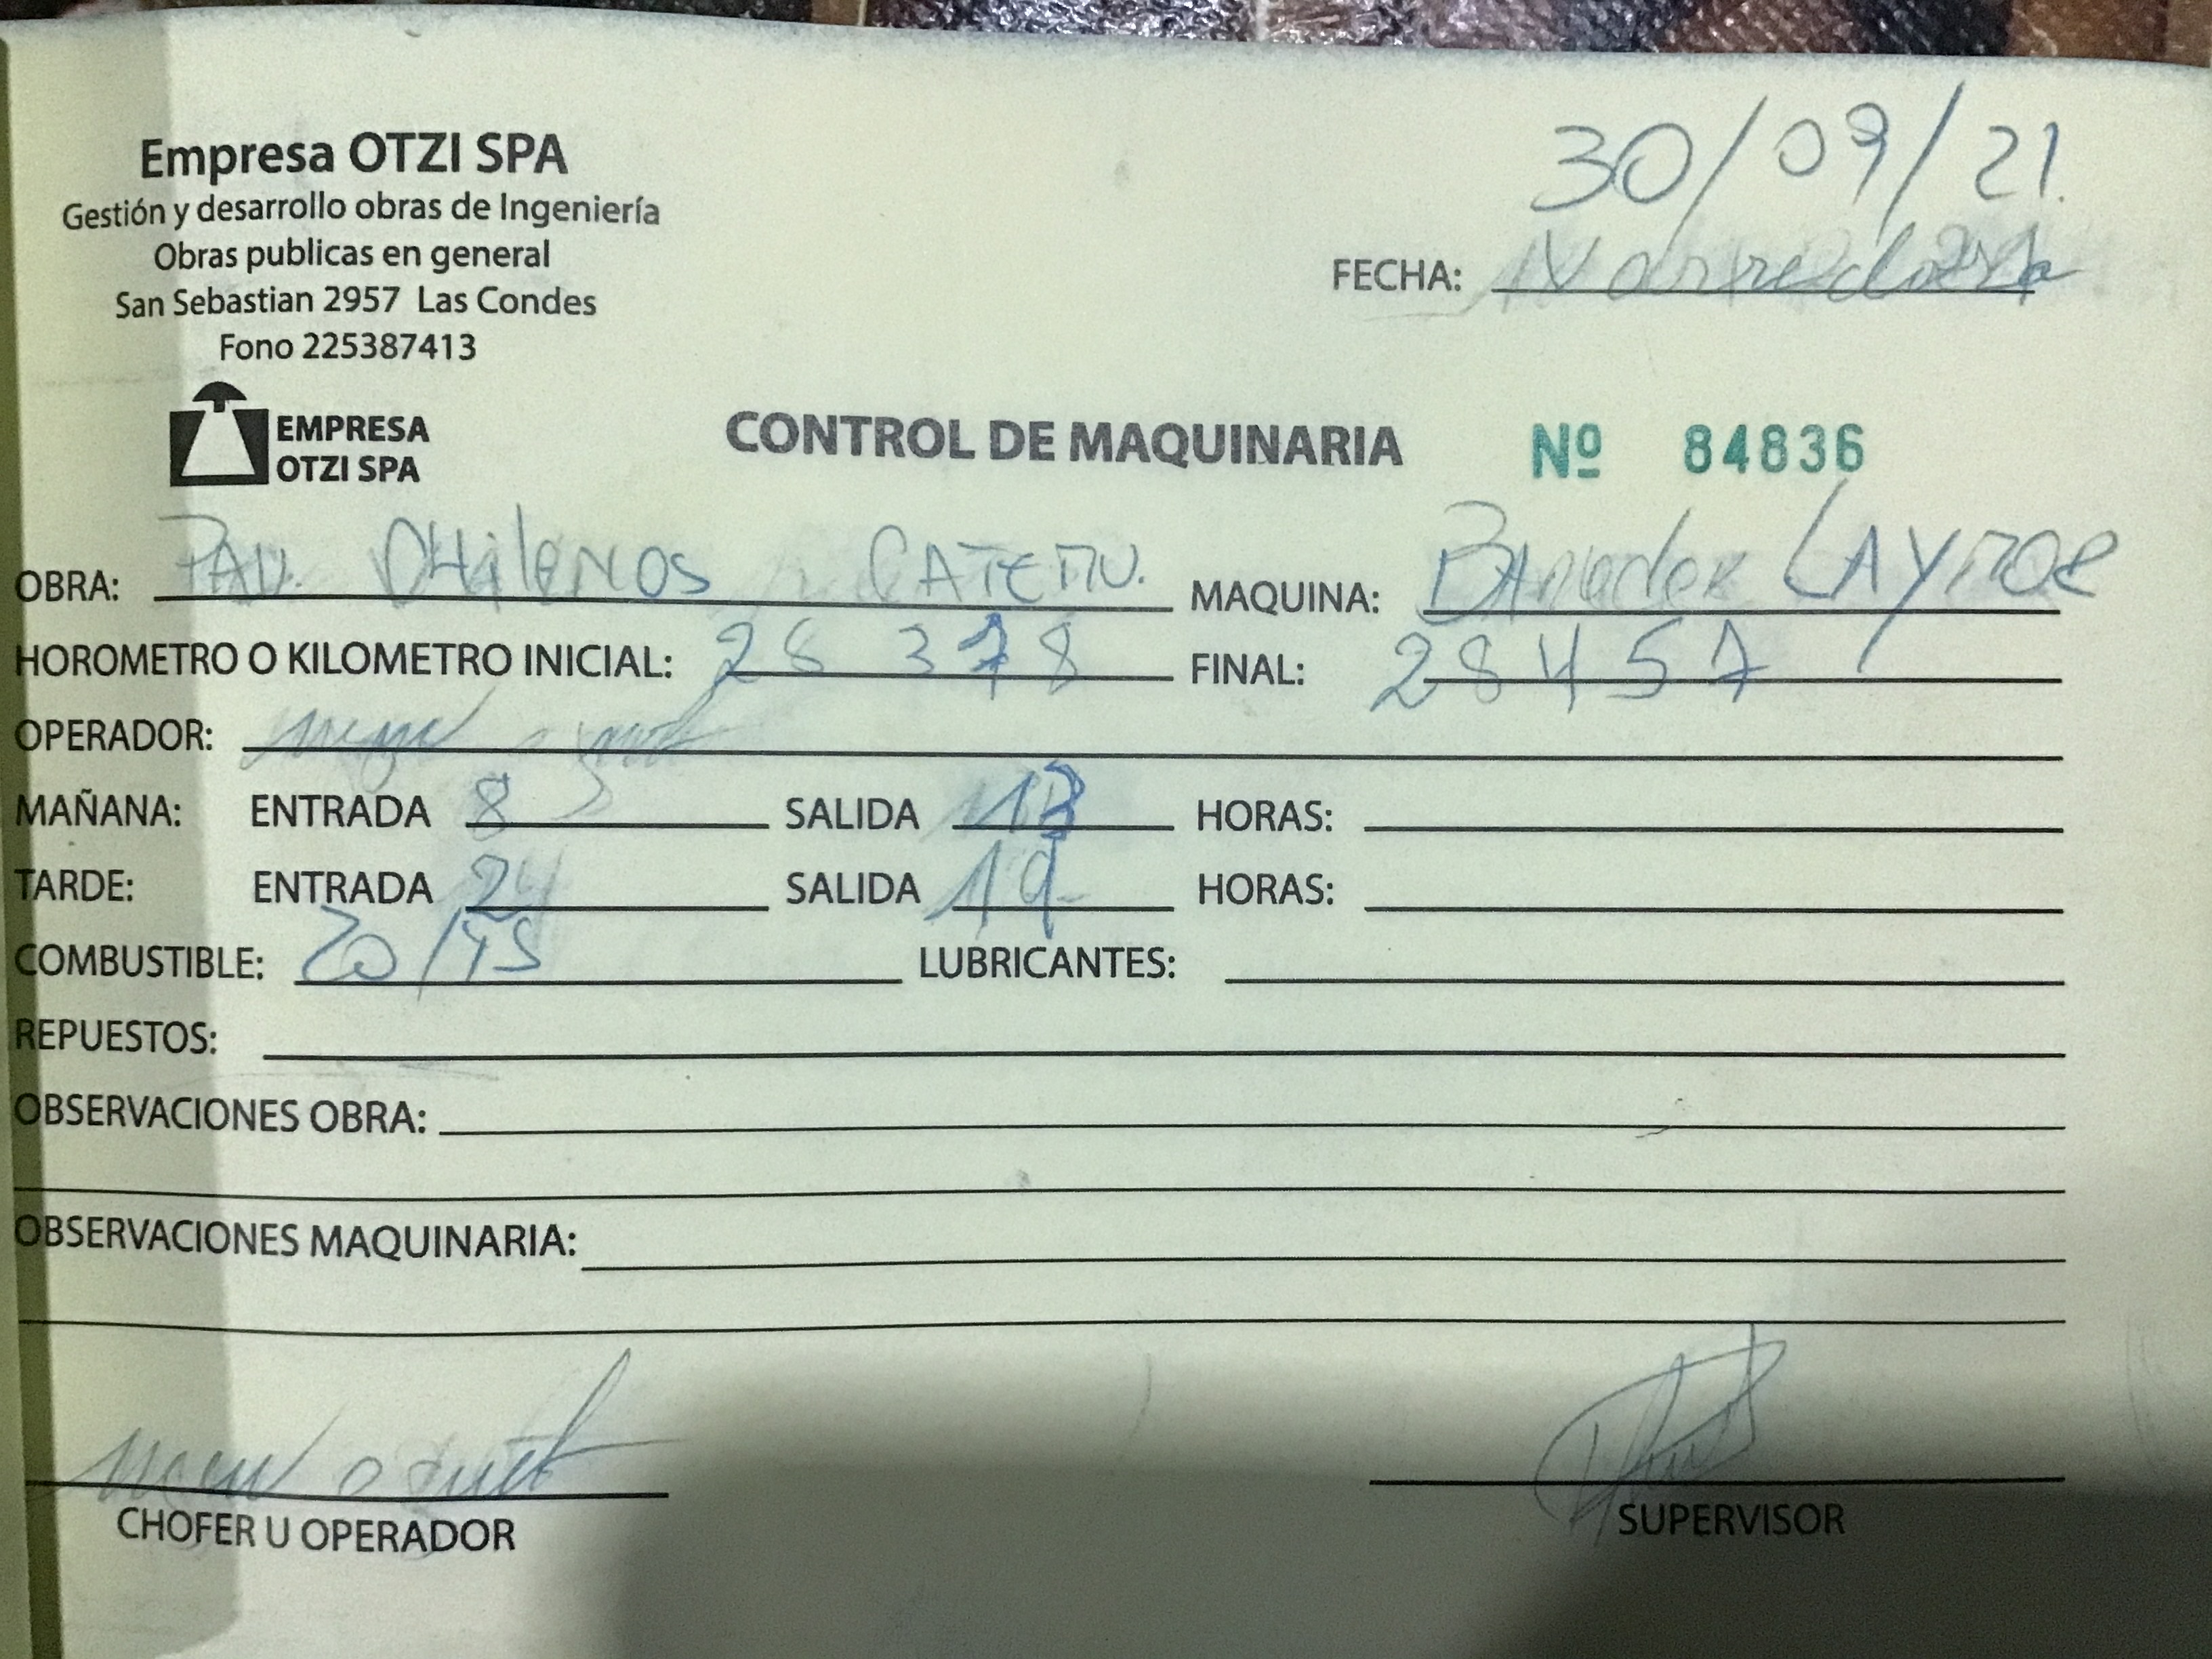 Empresa OTZI SPA
Gestión y desarrollo obras de Ingeniería
Obras publicas en general
San Sebastian 2957 Las Condes
Fono 225387413
30/09/21.
FECHA:
EMPRESA
OTZI SPA
CONTROL DE MAQUINARIA Nº 84836
OBRA: PAV. CHileNOS MAQUINA:
HOROMETRO O KILOMETRO INICIAL: 28 378 FINAL: 28457
OPERADOR:
MAÑANA: ENTRADA 8 SALIDA 13 HORAS:
TARDE: ENTRADA SALIDA 19 HORAS:
COMBUSTIBLE: LUBRICANTES:
REPUESTOS:
OBSERVACIONES OBRA:
OBSERVACIONES MAQUINARIA:
CHOFER U OPERADOR
SUPERVISOR